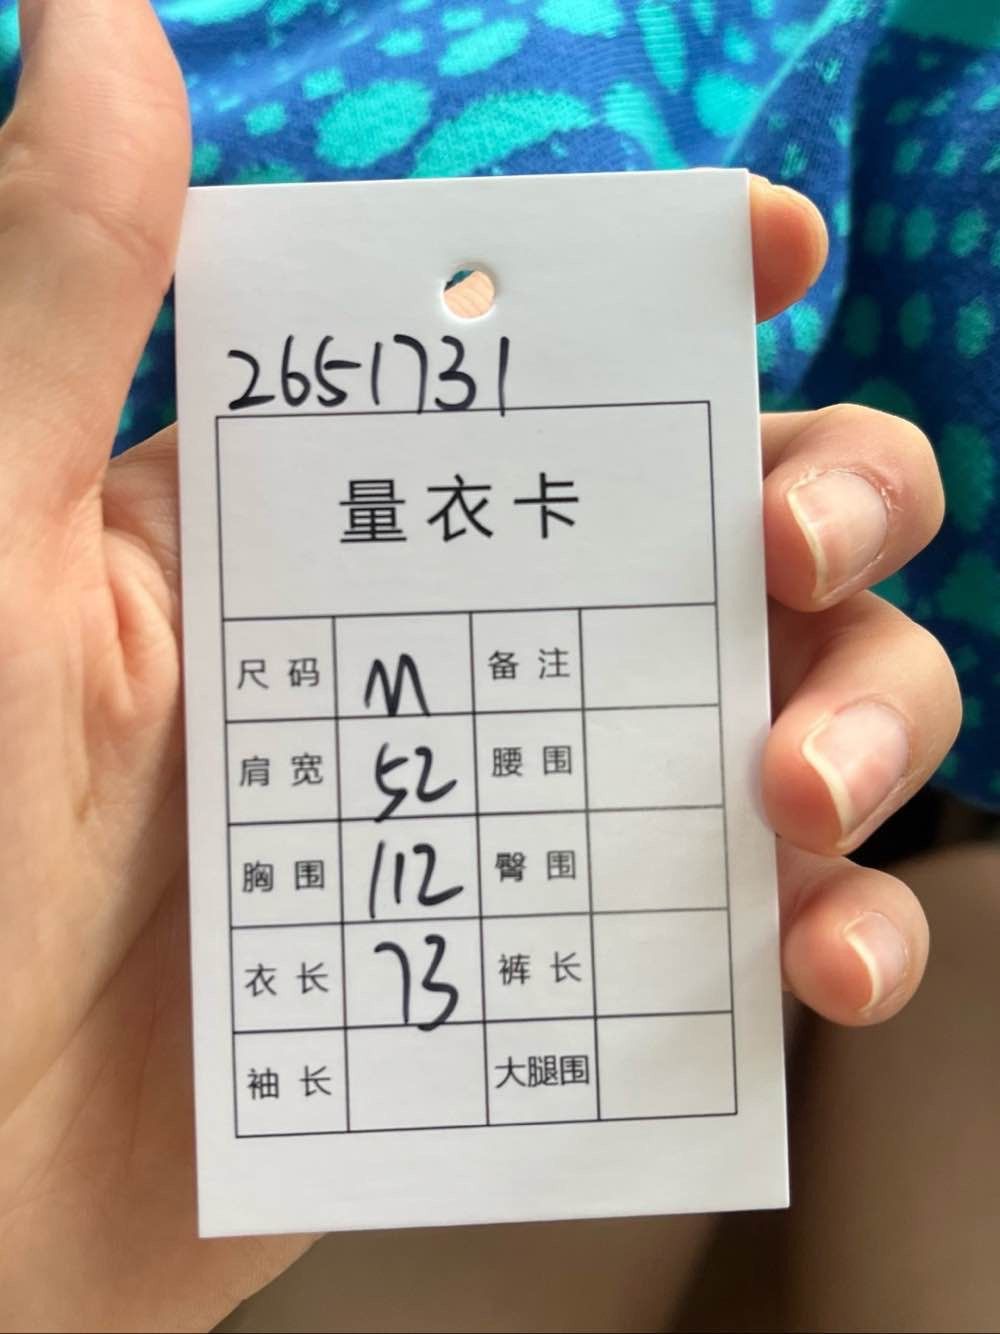 2651731
量衣卡
尺码 M 备注
肩宽 52 腰围
胸围 112 臀围
衣长 73 裤长
袖长 大腿围